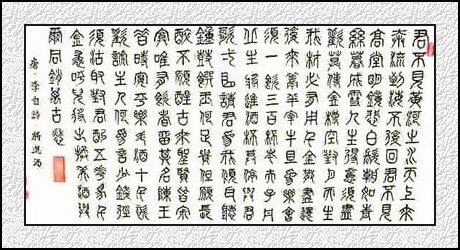 君不見黃河之水天上來
奔流到海不復回君不見
高堂明鏡悲白髮朝如青
絲暮成雪人生得意須盡
歡莫使金樽空對月天生
我材必有用千金散盡還
復來烹羊宰牛且為樂會
須一飲三百杯岑夫子丹
丘生將進酒杯莫停與君
歌一曲請君為我傾耳聽
鐘鼓饌玉何足貴但願長
醉不願醒古來聖賢皆寂
寞唯有飲者留其名陳王
昔時宴平樂斗酒十千恣
歡謔主人何為言少錢徑
須沽取對君酌五花馬千
金裘呼兒將出換美酒與
爾同銷萬古愁
唐·李白詩 將進酒